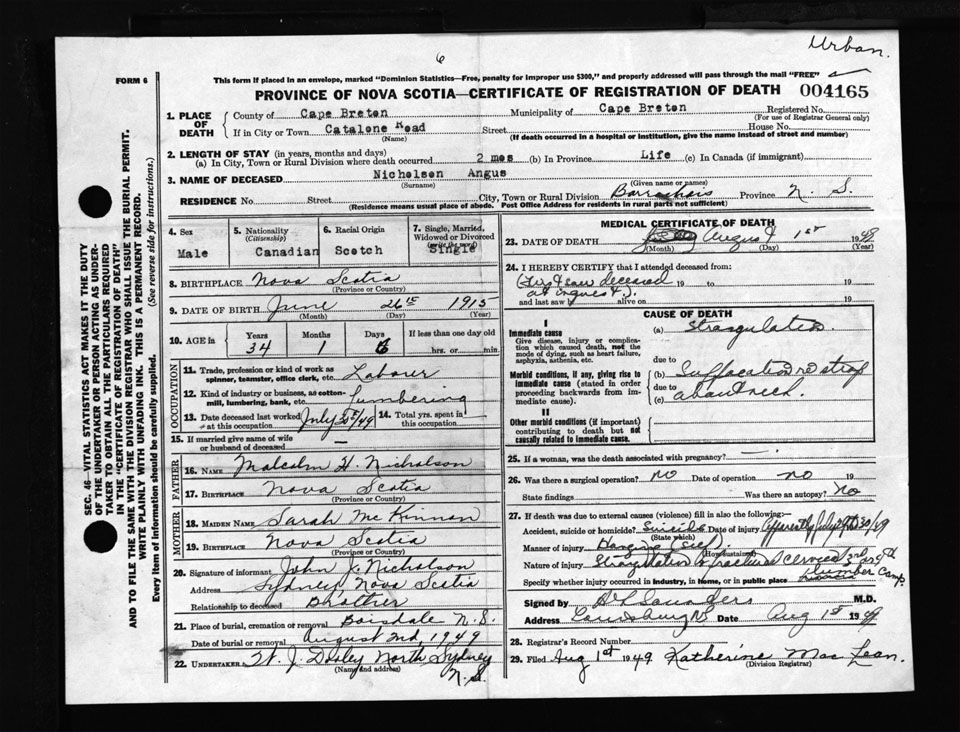 Urban.
6
FORM 6
This form if placed in an envelope, marked "Dominion Statistics—Free, penalty for improper use $300," and properly addressed will pass through the mail "FREE"
PROVINCE OF NOVA SCOTIA—CERTIFICATE OF REGISTRATION OF DEATH 004165
1. PLACE OF DEATH
County of Cape Breton Municipality of Cape Breton Registered No.
(For use of Registrar General only)
If in City or Town Catalone Road Street House No.
(Name) (If death occurred in a hospital or institution, give the name instead of street and number)
2. LENGTH OF STAY (in years, months and days)
(a) In City, Town or Rural Division where death occurred 2 mos (b) In Province Life (c) In Canada (if immigrant)
3. NAME OF DECEASED Nicholson Angus
(Surname) (Given name or names)
RESIDENCE No. Street City, Town or Rural Division Barrachois Province N. S.
(Residence means usual place of abode. Post Office Address for residents in rural parts not sufficient)
SEC. 46—VITAL STATISTICS ACT MAKES IT THE DUTY
OF THE UNDERTAKER OR PERSON ACTING AS UNDER-
TAKER TO OBTAIN ALL THE PARTICULARS REQUIRED
IN THE "CERTIFICATE OF REGISTRATION OF DEATH"
AND TO FILE THE SAME WITH THE DIVISION REGISTRAR WHO SHALL ISSUE THE BURIAL PERMIT.
WRITE PLAINLY WITH UNFADING INK. THIS IS A PERMANENT RECORD.
Every item of information should be carefully supplied. (See reverse side for instructions.)
4. Sex
Male
5. Nationality
(Citizenship)
Canadian
6. Racial Origin
Scotch
7. Single, Married,
Widowed or Divorced
(write the word)
Single
8. BIRTHPLACE Nova Scotia
(Province or Country)
9. DATE OF BIRTH June 26th 1915
(Month) (Day) (Year)
10. AGE in
Years
34
Months
1
Days
6
If less than one day old
hrs. or min.
OCCUPATION
11. Trade, profession or kind of work as
spinner, teamster, office clerk, etc. Labourer
12. Kind of industry or business, as cotton-
mill, lumbering, bank, etc. Lumbering
13. Date deceased last worked
at this occupation July 30th/49
14. Total yrs. spent in
this occupation
15. If married give name of wife
or husband of deceased —
FATHER
16. NAME Malcolm H. Nicholson
17. BIRTHPLACE Nova Scotia
(Province or Country)
MOTHER
18. MAIDEN NAME Sarah Mc Kinnon
19. BIRTHPLACE Nova Scotia
(Province or Country)
20. Signature of informant John J. Nicholson
Address Sydney, Nova Scotia
Relationship to deceased Brother
21. Place of burial, cremation or removal Boisdale N.S.
Date of burial or removal August 2nd, 1949
22. UNDERTAKER W. J. Dooley North Sydney
(Name and address) N.S.
MEDICAL CERTIFICATE OF DEATH
23. DATE OF DEATH August 1st 1949
(Month) (Day) (Year)
24. I HEREBY CERTIFY that I attended deceased from:
(First saw deceased 19 to 19
at inquest).
and last saw alive on 19
CAUSE OF DEATH
I
Immediate cause
Give disease, injury or complica-
tion which caused death, not the
mode of dying, such as heart failure,
asphyxia, asthenia, etc.
(a) Strangulation.
due to
Morbid conditions, if any, giving rise to
immediate cause (stated in order
proceeding backwards from im-
mediate cause).
(b) Suffocation strap
due to
(c) about neck.
II
Other morbid conditions (if important)
contributing to death but not
causally related to immediate cause.
25. If a woman, was the death associated with pregnancy? —
26. Was there a surgical operation? no Date of operation no 19
State findings Was there an autopsy? No
27. If death was due to external causes (violence) fill in also the following:—
Accident, suicide or homicide? Suicide Date of injury Apparently July 30/49
(State which)
Manner of injury Hanging (self).
(How sustained)
Nature of injury Strangulation & fractured cervical 3rd or 4th
Specify whether injury occurred in industry, in home, or in public place Lumber Camp
Signed by M.D.
Address Louisburg NS Date Aug 1st 1949
28. Registrar's Record Number
29. Filed Aug 1st 1949 Katherine Mac Lean.
(Division Registrar)